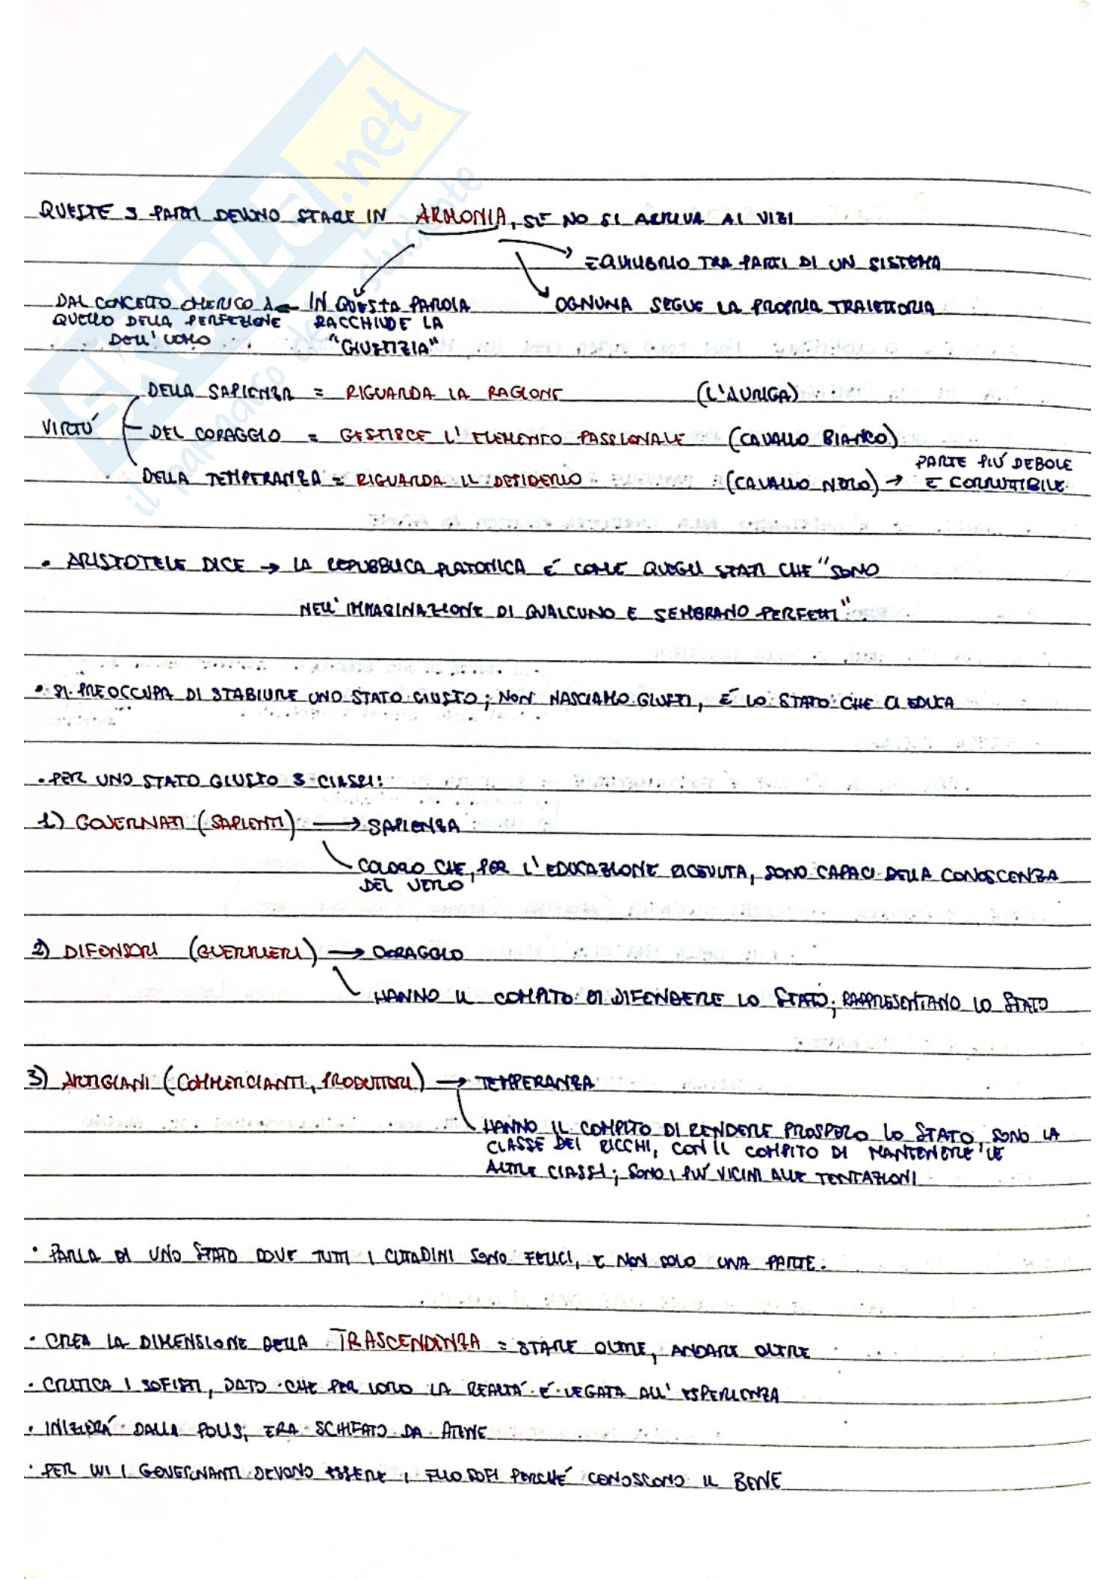 SKUOLA.net
il paradiso dello studente
QUESTE 3 PARTI DEVONO STARE IN ARMONIA, SE NO SI ARRIVA AI VIZI
EQUILIBRIO TRA PARTI DI UN SISTEMA
OGNUNA SEGUE LA PROPRIA TRAIETTORIA
IN QUESTA PAROLA
RACCHIUDE LA
"GIUSTIZIA"
DAL CONCETTO OMERICO A
QUELLO DELLA PERFEZIONE
DELL' UOMO
VIRTÚ
DELLA SAPIENZA = RIGUARDA LA RAGIONE (L'AURIGA)
DEL CORAGGIO = GESTISCE L'ELEMENTO PASSIONALE (CAVALLO BIANCO)
DELLA TEMPERANZA = RIGUARDA IL DESIDERIO (CAVALLO NERO) → PARTE PIÚ DEBOLE
E CORRUTTIBILE
• ARISTOTELE DICE → LA REPUBBLICA PLATONICA É COME QUEGLI STATI CHE "SONO
NELL'IMMAGINAZIONE DI QUALCUNO E SEMBRANO PERFETTI".
• SI PREOCCUPA DI STABILIRE UNO STATO GIUSTO; NON NASCIAMO GIUSTI, É LO STATO CHE CI EDUCA
• PER UNO STATO GIUSTO 3 CLASSI:
1) GOVERNATI (SAPIENTI) → SAPIENZA
COLORO CHE, PER L'EDUCAZIONE RICEVUTA, SONO CAPACI DELLA CONOSCENZA
DEL VERO
2) DIFENSORI (GUERRIERI) → CORAGGIO
HANNO IL COMPITO DI DIFENDERE LO STATO; RAPPRESENTANO LO STATO
3) ARTIGIANI (COMMERCIANTI, PRODUTTORI) → TEMPERANZA
HANNO IL COMPITO DI RENDERE PROSPERO LO STATO, SONO LA
CLASSE DEI RICCHI, CON IL COMPITO DI MANTENERE LE
ALTRE CLASSI; SONO I PIÚ VICINI ALLE TENTAZIONI
• PARLA DI UNO STATO DOVE TUTTI I CITTADINI SONO FELICI, E NON SOLO UNA PARTE.
• CREA LA DIMENSIONE DELLA TRASCENDENZA = STARE OLTRE, ANDARE OLTRE
• CRITICA I SOFISTI, DATO CHE PER LORO LA REALTÁ É LEGATA ALL'ESPERIENZA
• INIZIERÁ DALLA POLIS; ERA SCHIFATO DA ATENE
• PER LUI I GOVERNANTI DEVONO ESSERE I FILOSOFI PERCHÉ CONOSCONO IL BENE